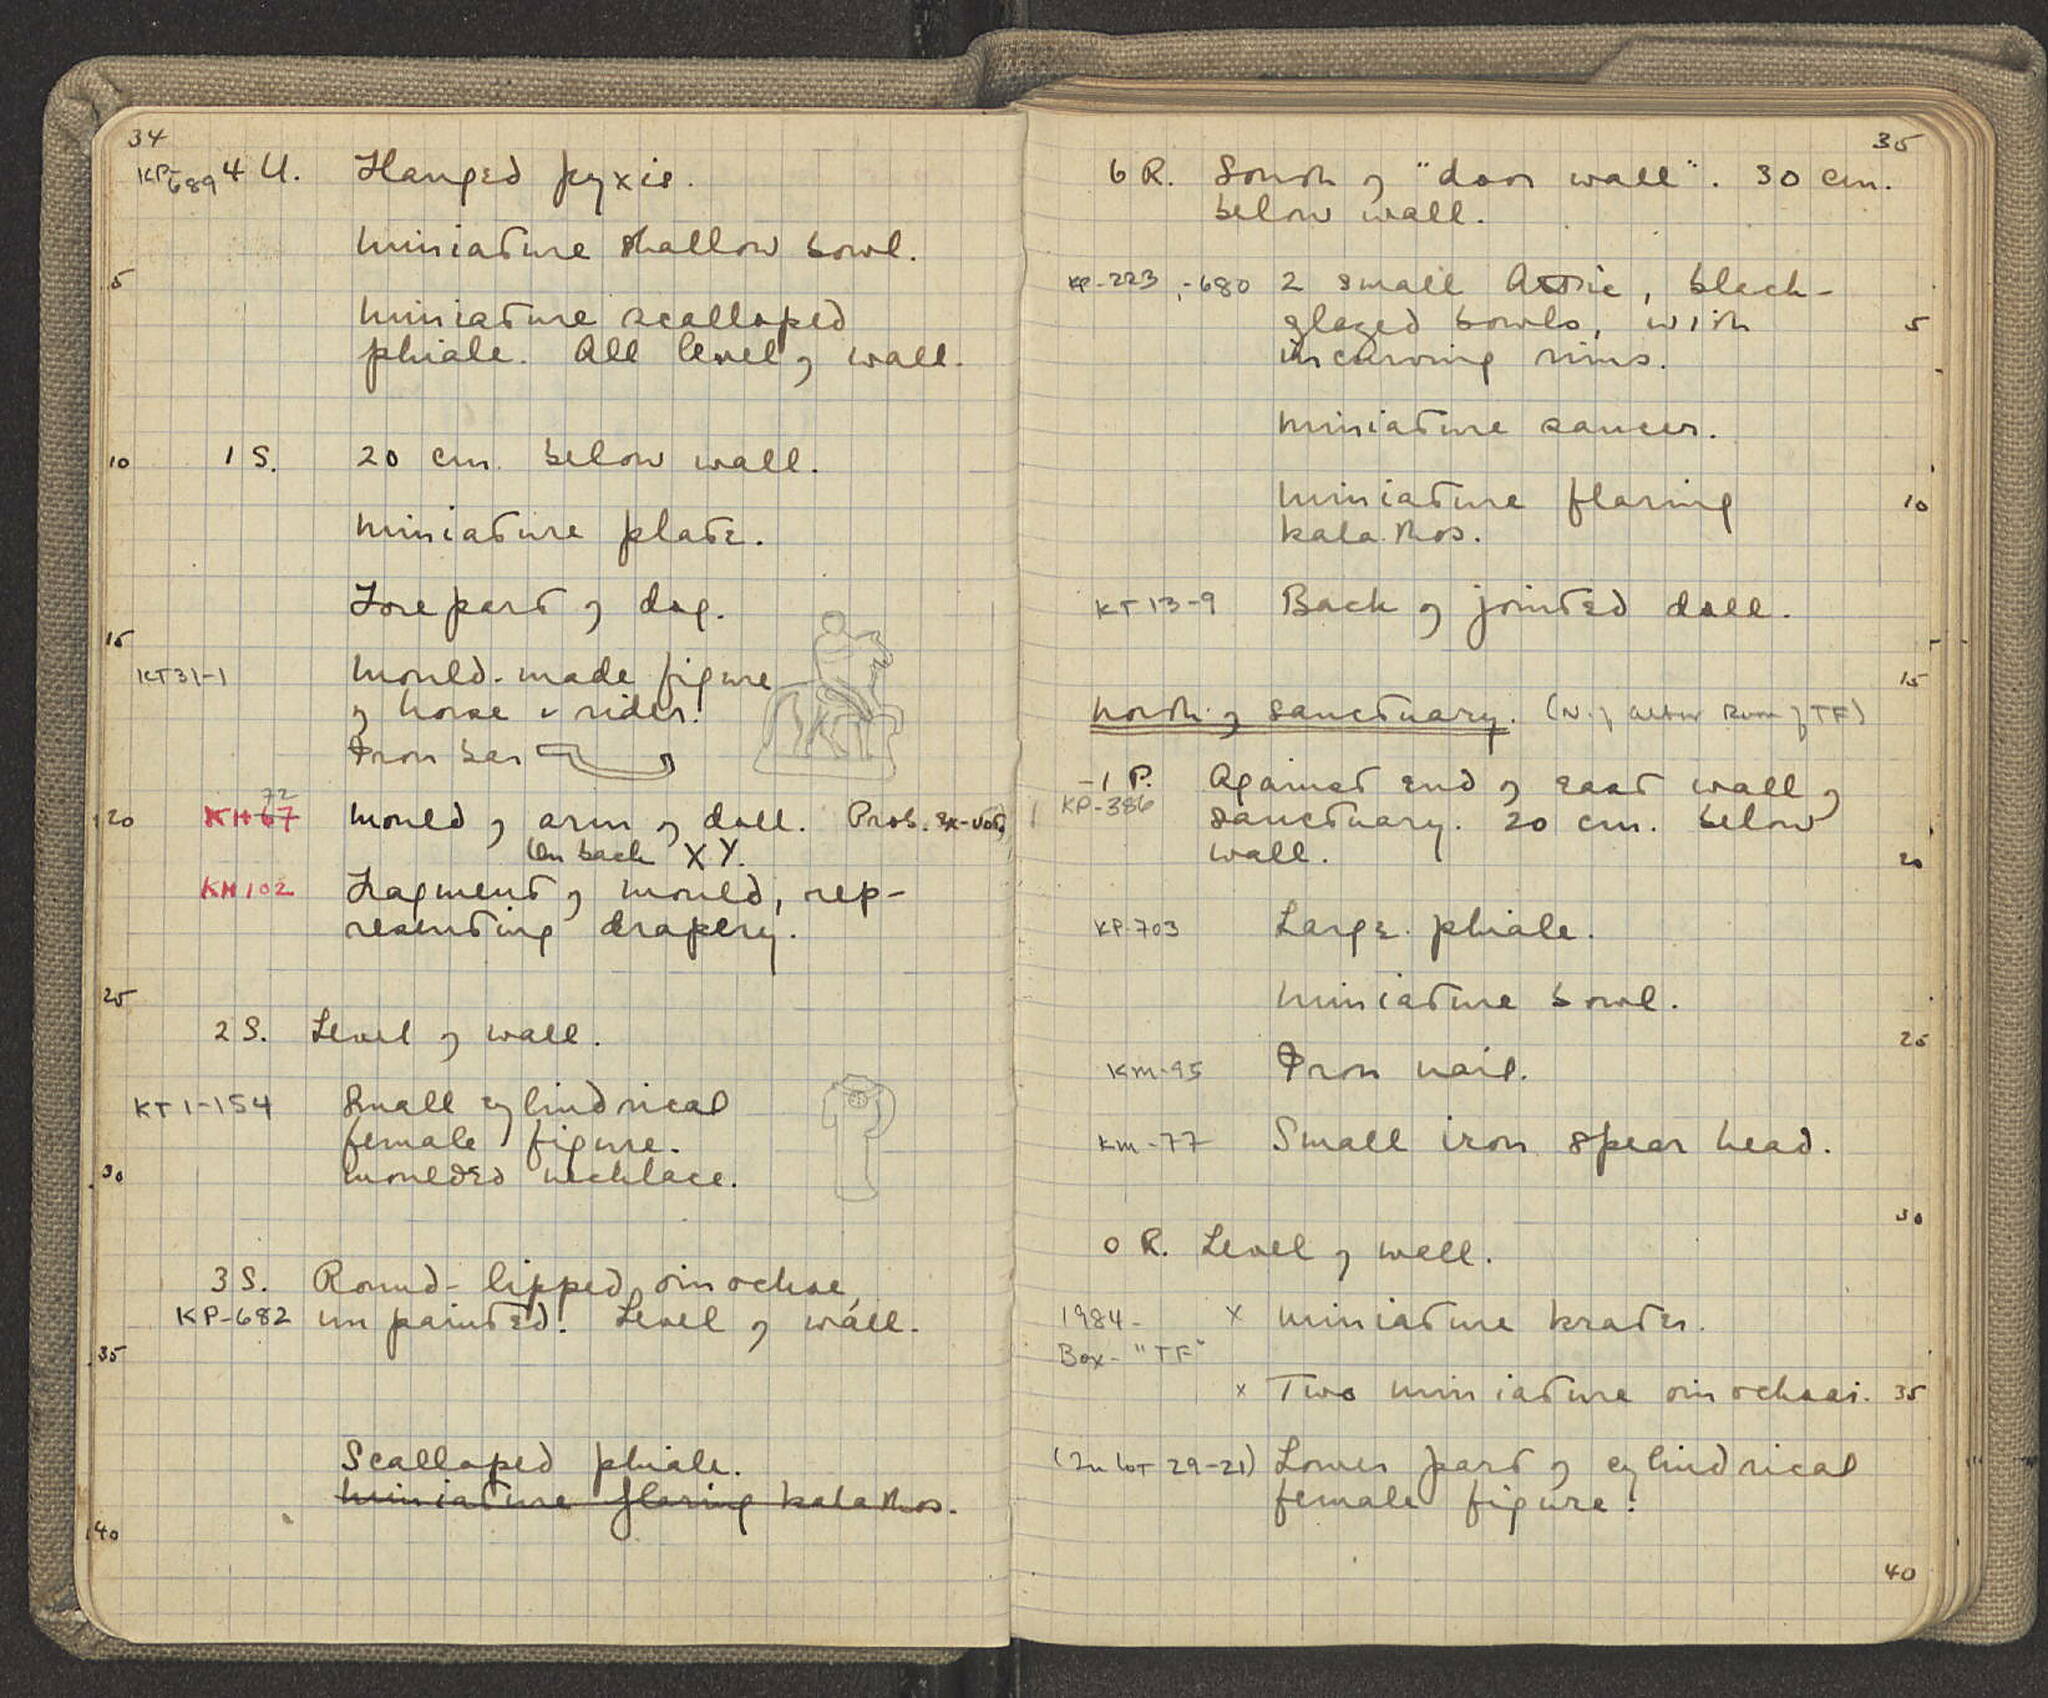 34
KP-689 4 U. Flanged pyxis.
Miniature shallow bowl.
5
Miniature scalloped
phiale. All level of wall.
10 1 S. 20 cm. below wall.
Miniature plate.
Forepart of dog.
15
KT31-1 Mould-made figure
of horse & rider.
Iron bar
72
20 KH67 Mould of arm of doll. Prob. ex-voto
On back XY.
KH102 Fragment of mould, rep-
resenting drapery.
25
2 S. Level of wall.
KT1-154 Small cylindrical
female figure.
30 Moulded necklace.
3 S. Round-lipped oinochoe,
KP-682 unpainted. Level of wall.
35
Scalloped phiale.
Miniature flaring kalathos.
40
35
6 R. South of "door wall". 30 cm.
below wall.
KP-223, -680 2 small Attic, black-
glazed bowls, with 5
incurving rims.
Miniature saucer.
Miniature flaring 10
kalathos.
KT13-9 Back of jointed doll.
15
North of sanctuary. (N. of altar Room of TF)
-1 P. Against end of east wall of
KP-386 sanctuary. 20 cm. below
wall. 20
KP-703 Large phiale.
Miniature bowl.
25
KM-95 Iron nail.
KM-77 Small iron spear head.
30
0 R. Level of wall.
1984- x Miniature krater.
Box- "TF"
x Two miniature oinochoai. 35
(In lot 29-21) Lower part of cylindrical
female figure.
40